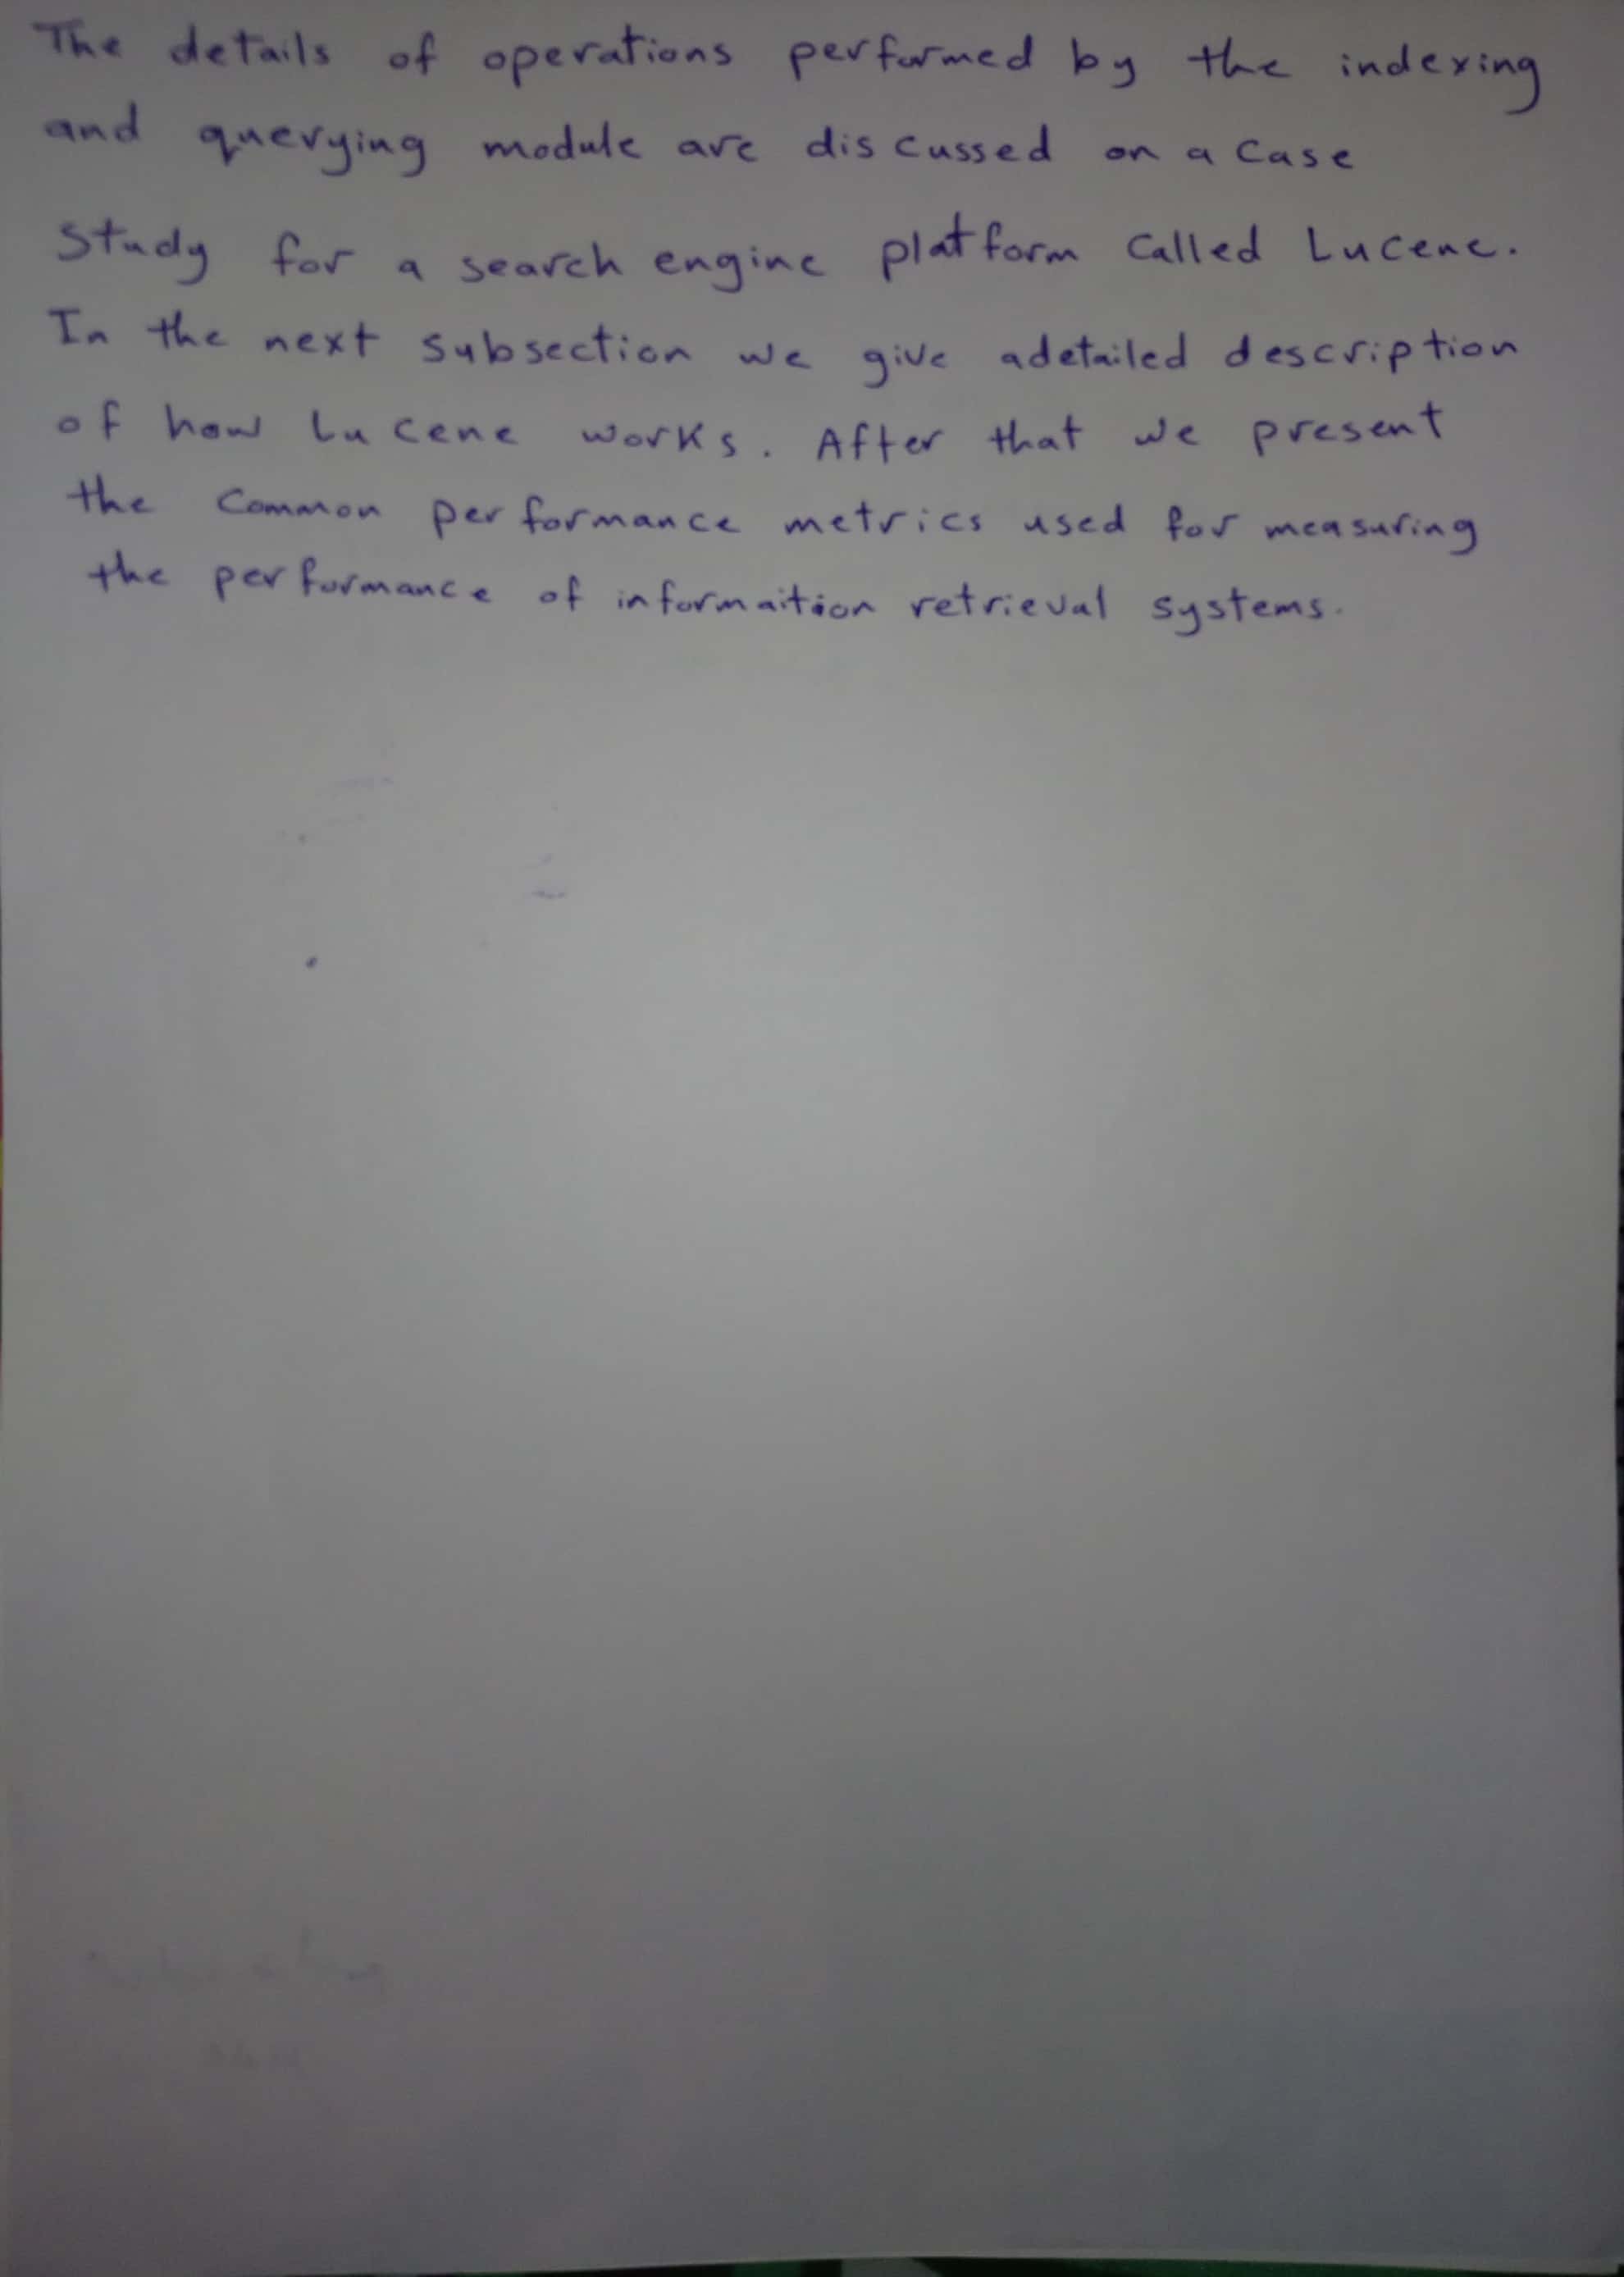 The details of operations performed by the indexing
and querying module are discussed on a case
study for a search engine platform called Lucene.
In the next subsection we give adetailed description
of how Lucene works. After that we present
the common performance metrics used for measuring
the performance of informaition retrieval systems.